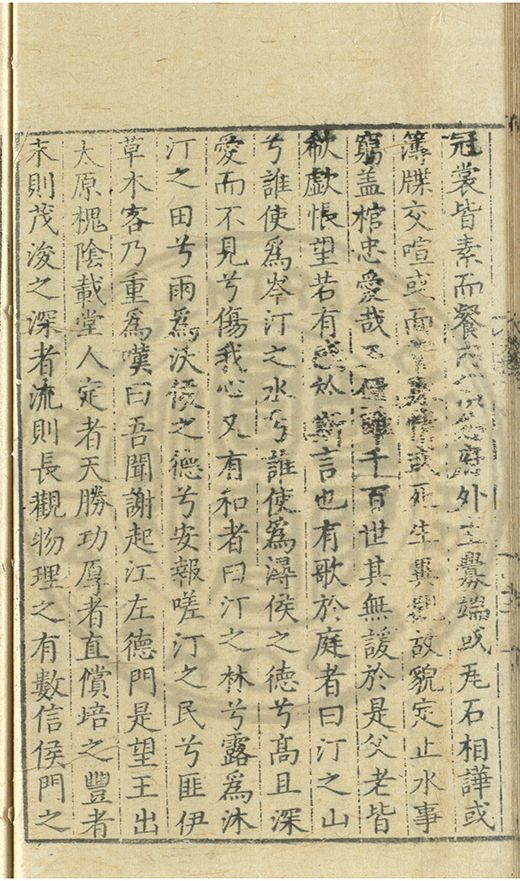 冠裳皆素而餐外生釁端或瓦石相譁或
簿牒交喧或而死生異故貌定止水事
窮盖棺忠愛哉千百世其無諼於是父老皆
欷歔悵望若有於斯言也有歌於庭者曰汀之山
兮誰使爲岑汀之水兮誰使爲潯侯之德兮高且深
愛而不見兮傷我心又有和者曰汀之林兮露爲沐
汀之田兮雨爲沃侯之德兮安報嗟汀之民兮匪伊
草木客乃重爲嘆曰吾聞謝起江左德門是望王出
太原槐陰載堂人定者天勝功厚者直償培之豐者
末則茂浚之深者流則長觀物理之有數信侯門之